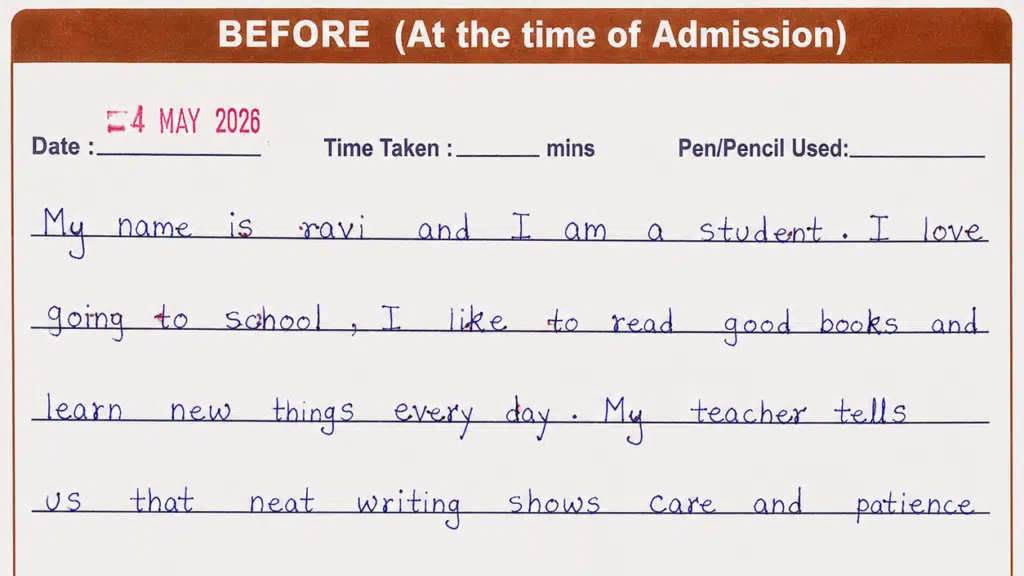 BEFORE (At the time of Admission)
-4 MAY 2026
Date : Time Taken : mins Pen/Pencil Used:
My name is ravi and I am a student. I love
going to school, I like to read good books and
learn new things every day. My teacher tells
us that neat writing shows care and patience